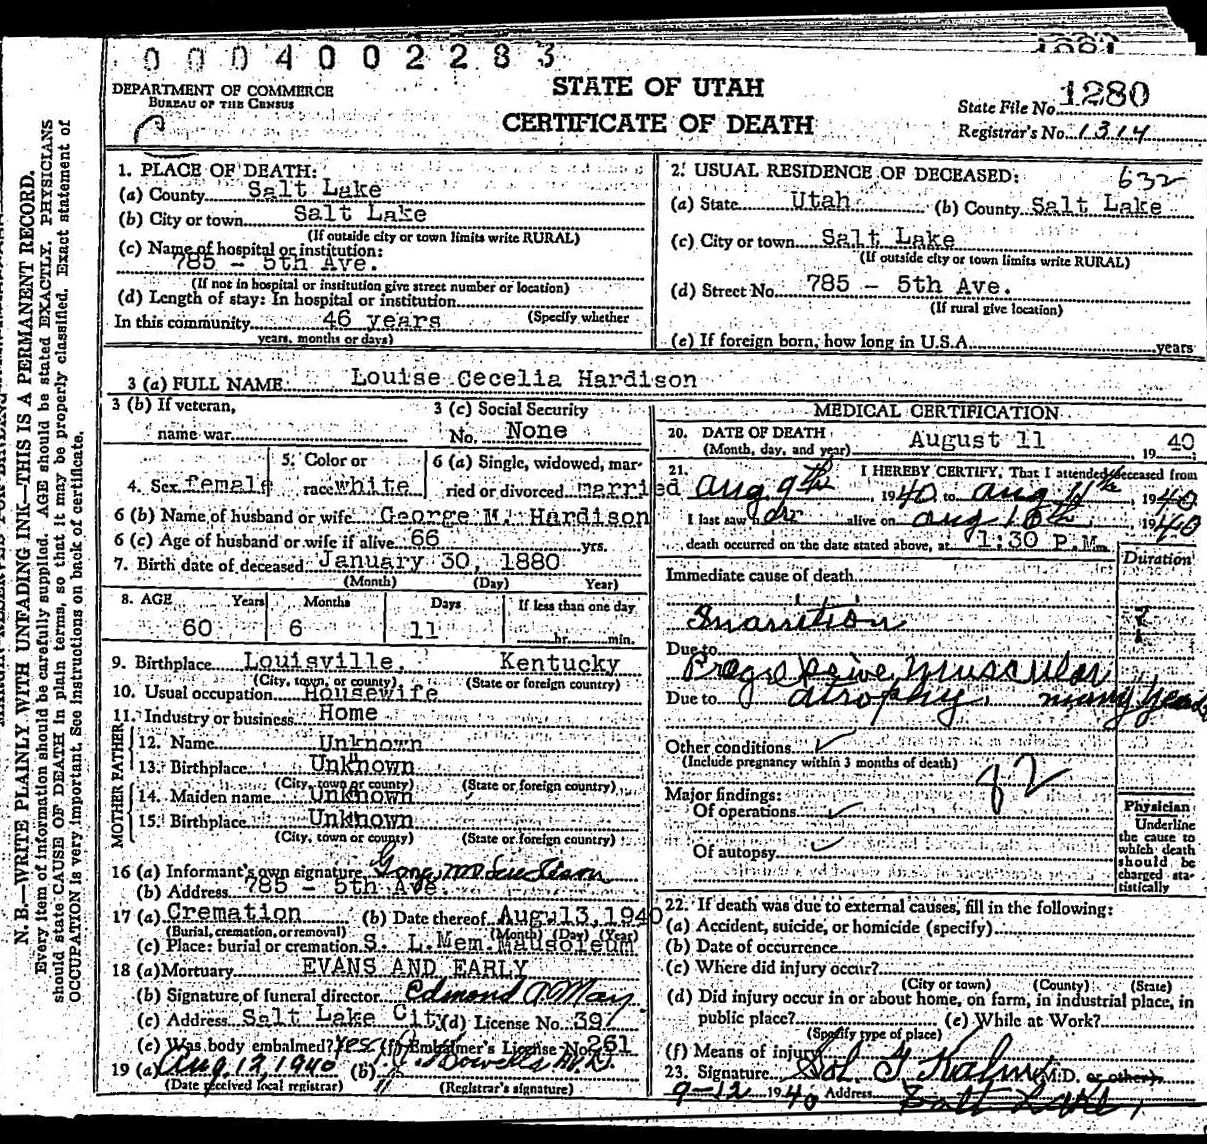 0 0 0 4 0 0 2 2 8 3
DEPARTMENT OF COMMERCE
BUREAU OF THE CENSUS
STATE OF UTAH
CERTIFICATE OF DEATH
State File No. 1280
Registrar's No. 1314
N. B.—WRITE PLAINLY WITH UNFADING INK—THIS IS A PERMANENT RECORD.
Every item of information should be carefully supplied. AGE should be stated EXACTLY. PHYSICIANS
should state CAUSE OF DEATH in plain terms, so that it may be properly classified. Exact statement of
OCCUPATION is very important. See instructions on back of certificate.
1. PLACE OF DEATH:
(a) County Salt Lake
(b) City or town Salt Lake
(If outside city or town limits write RURAL)
(c) Name of hospital or institution:
785 - 5th Ave.
(If not in hospital or institution give street number or location)
(d) Length of stay: In hospital or institution
(Specify whether
In this community 46 years
years, months or days)
2. USUAL RESIDENCE OF DECEASED: 632
(a) State Utah (b) County Salt Lake
(c) City or town Salt Lake
(If outside city or town limits write RURAL)
(d) Street No. 785 - 5th Ave.
(If rural give location)
(e) If foreign born, how long in U.S.A. years
3 (a) FULL NAME Louise Cecelia Hardison
3 (b) If veteran,
name war
3 (c) Social Security
No. None
4. Sex female
5. Color or
race white
6 (a) Single, widowed, mar-
ried or divorced married
6 (b) Name of husband or wife George M. Hardison
6 (c) Age of husband or wife if alive 66 yrs.
7. Birth date of deceased January 30, 1880
(Month) (Day) Year)
8. AGE Years Months Days If less than one day
60 6 11 hr. min.
9. Birthplace Louisville, Kentucky
(City, town, or county) (State or foreign country)
10. Usual occupation Housewife
11. Industry or business Home
FATHER
12. Name Unknown
13. Birthplace Unknown
(City, town or county) (State or foreign country)
MOTHER
14. Maiden name Unknown
15. Birthplace Unknown
(City, town or county) (State or foreign country)
16 (a) Informant's own signature
(b) Address 785 - 5th Ave.
17 (a) Cremation (b) Date thereof Aug. 13, 1940
(Burial, cremation, or removal) (Month) (Day) (Year)
(c) Place: burial or cremation S. L. Mem. Mausoleum
18 (a) Mortuary EVANS AND EARLY
(b) Signature of funeral director Edmond May
(c) Address Salt Lake City (d) License No. 397
(e) Was body embalmed? Yes (f) Embalmer's License No. 261
19 (a) Aug. 12, 1940 (b) M.D.
(Date received local registrar) (Registrar's signature)
MEDICAL CERTIFICATION
20. DATE OF DEATH August 11 19 40
(Month, day, and year)
21. I HEREBY CERTIFY, That I attended deceased from
Aug 9th, 1940 to Aug 11th, 1940
I last saw her alive on Aug 10th, 1940
death occurred on the date stated above, at 1:30 P.M.
Duration
Immediate cause of death
Inanition ?
Due to Progressive muscular
Due to atrophy. many years
Other conditions
(Include pregnancy within 3 months of death)
82
Major findings:
Of operations
Of autopsy
Physician
Underline
the cause to
which death
should be
charged sta-
tistically
22. If death was due to external causes, fill in the following:
(a) Accident, suicide, or homicide (specify)
(b) Date of occurrence
(c) Where did injury occur?
(City or town) (County) (State)
(d) Did injury occur in or about home, on farm, in industrial place, in
public place? (e) While at Work?
(Specify type of place)
(f) Means of injury
23. Signature Sol. G. Kahn (M.D. or other)
9-12 1940 Address Salt Lake